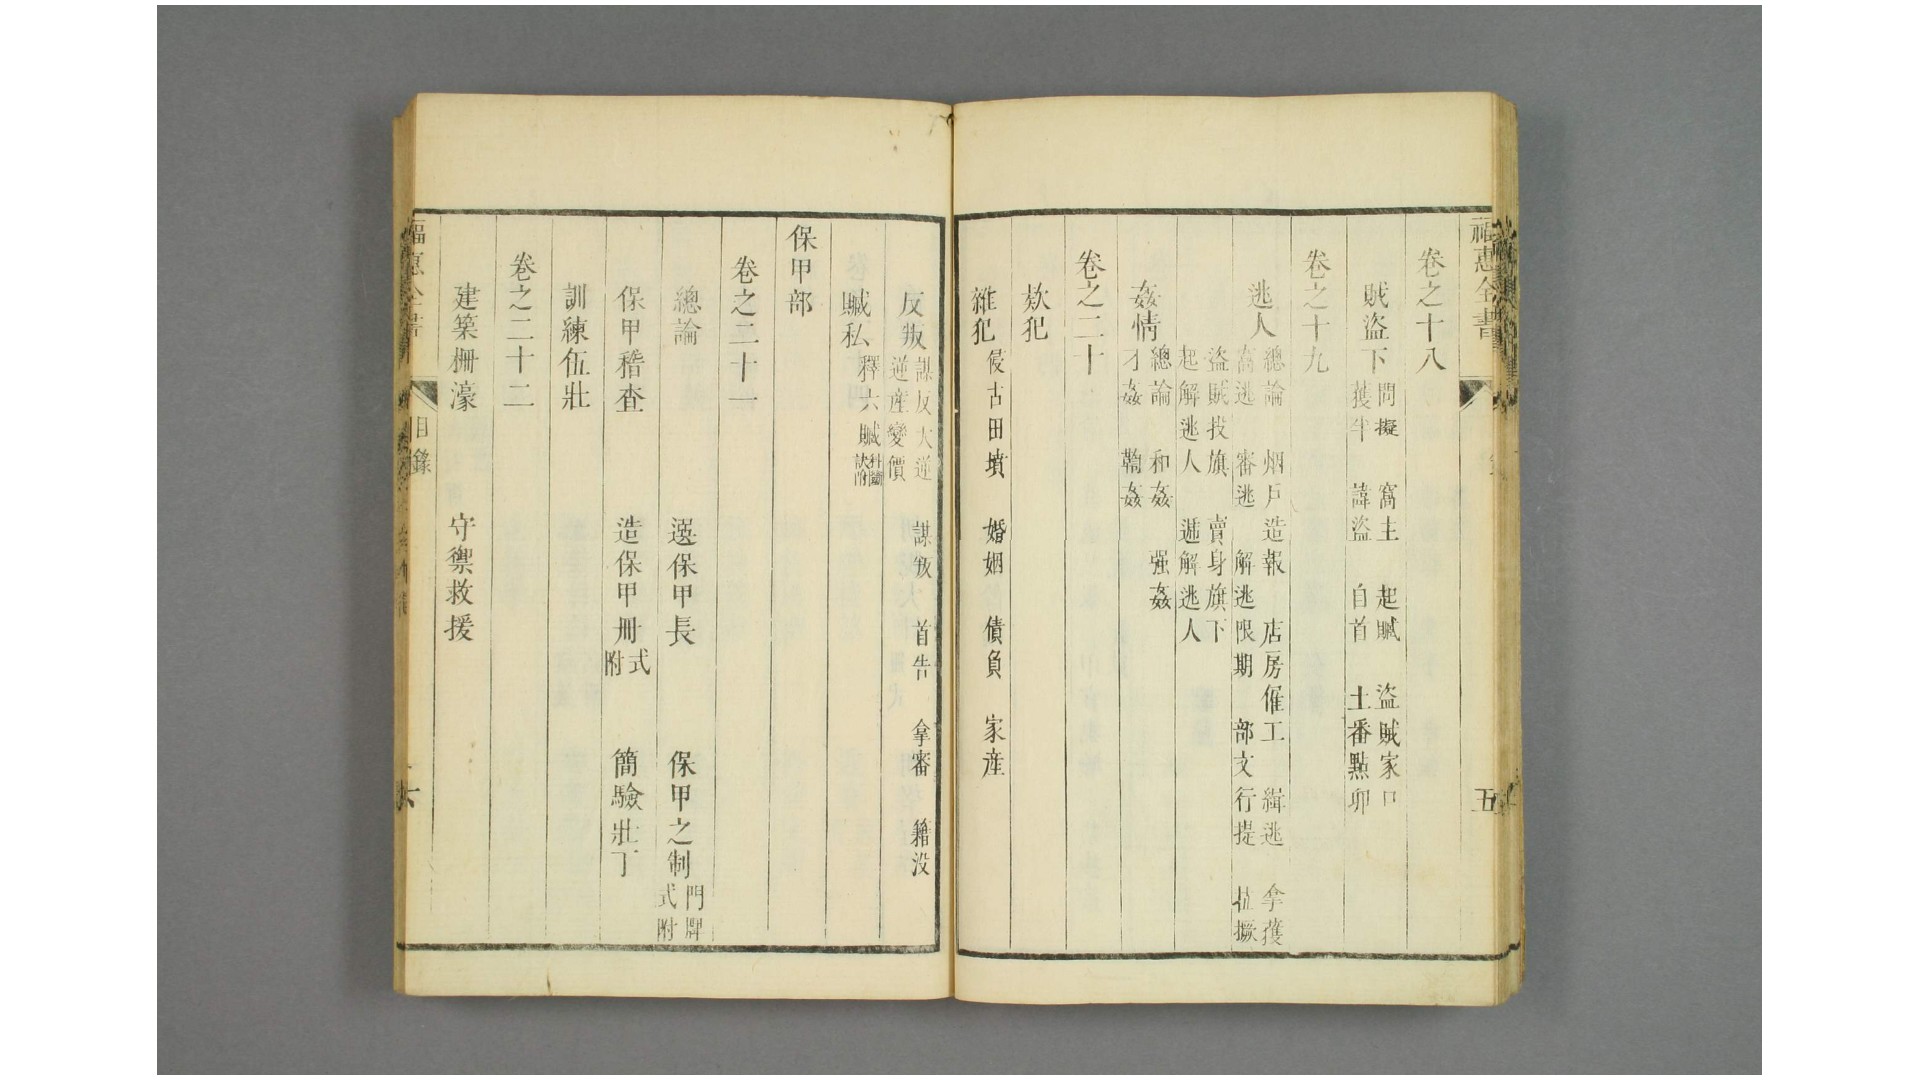 福惠全書
五
卷之十八
賊盜下
問擬　窩主　起贓　盜賊家口
獲半　諱盜　自首　土番點卯
卷之十九
逃人
總論　烟戶造報　店房傕工　緝逃　拿獲
窩逃　審逃　解逃限期　部文行提　扳撅
盜賊投旗　賣身旗下
起解逃人　遞解逃人
姦情
總論　和姦　强姦
刁姦　鞫姦
卷之二十
欵犯
雜犯　侵古田墳　婚姻　債負　家產
反叛
謀反大逆　謀叛　首告　拿審　籍没
逆產變價
贓私　釋六贓
科斷
欵附
保甲部
卷之二十一
總論　選保甲長　保甲之制
門牌
式附
保甲稽查　造保甲冊　簡驗壯丁
式
附
訓練伍壯
卷之二十二
建築柵濠　守禦救援
目錄
六